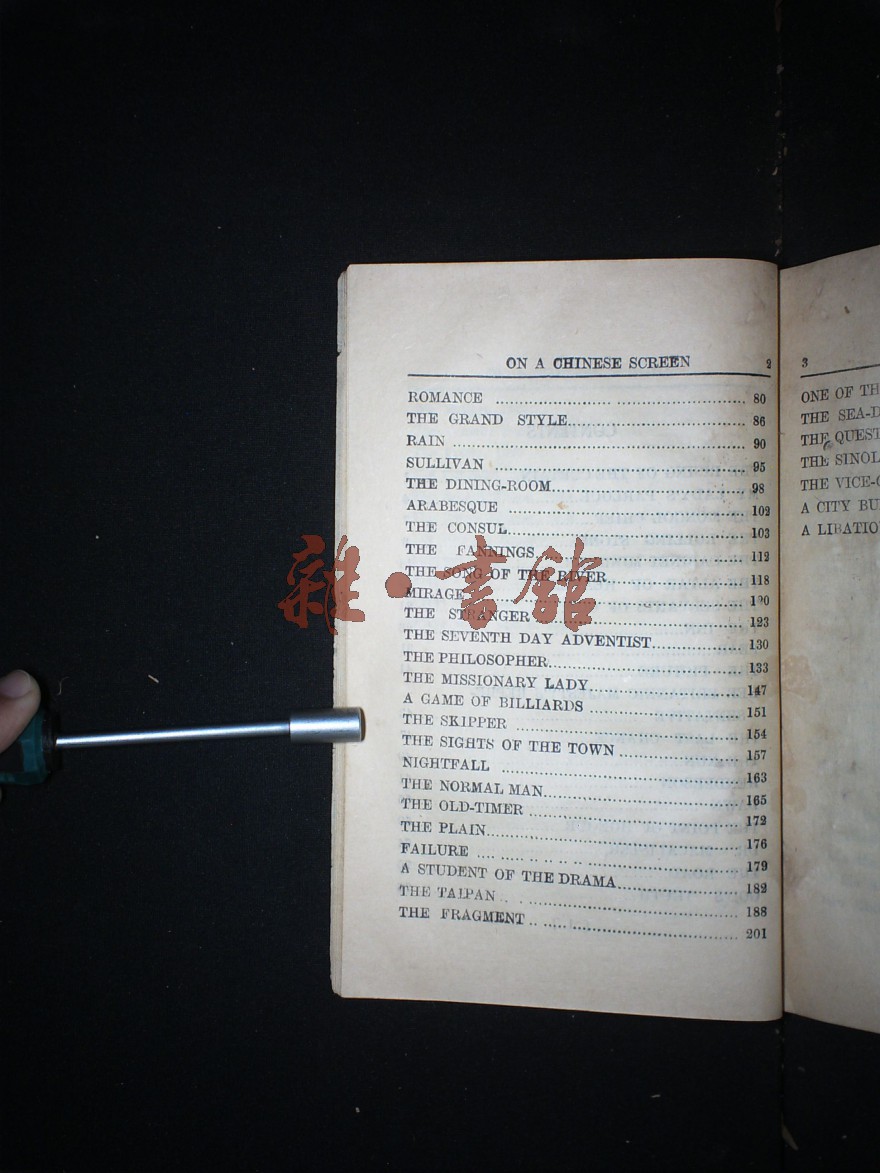 ON A CHINESE SCREEN 2
ROMANCE 80
THE GRAND STYLE 86
RAIN 90
SULLIVAN 95
THE DINING-ROOM 98
ARABESQUE 102
THE CONSUL 103
THE FANNINGS 112
THE SONG OF THE RIVER 118
MIRAGE
THE STRANGER 123
THE SEVENTH DAY ADVENTIST 130
THE PHILOSOPHER 133
THE MISSIONARY LADY 147
A GAME OF BILLIARDS 151
THE SKIPPER 154
THE SIGHTS OF THE TOWN 157
NIGHTFALL 163
THE NORMAL MAN 165
THE OLD-TIMER 172
THE PLAIN 176
FAILURE 179
A STUDENT OF THE DRAMA 182
THE TAIPAN 188
THE FRAGMENT 201
雜·書館
3
ONE OF TH
THE SEA-D
THE QUEST
THE SINOL
THE VICE-
A CITY BU
A LIBATIO